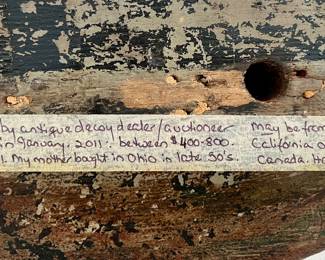 by antique decoy dealer/auctioneer
in January, 2011. between $400-800.
1. My mother bought in Ohio in late 50's.
may be from
California o
Canada. Ho